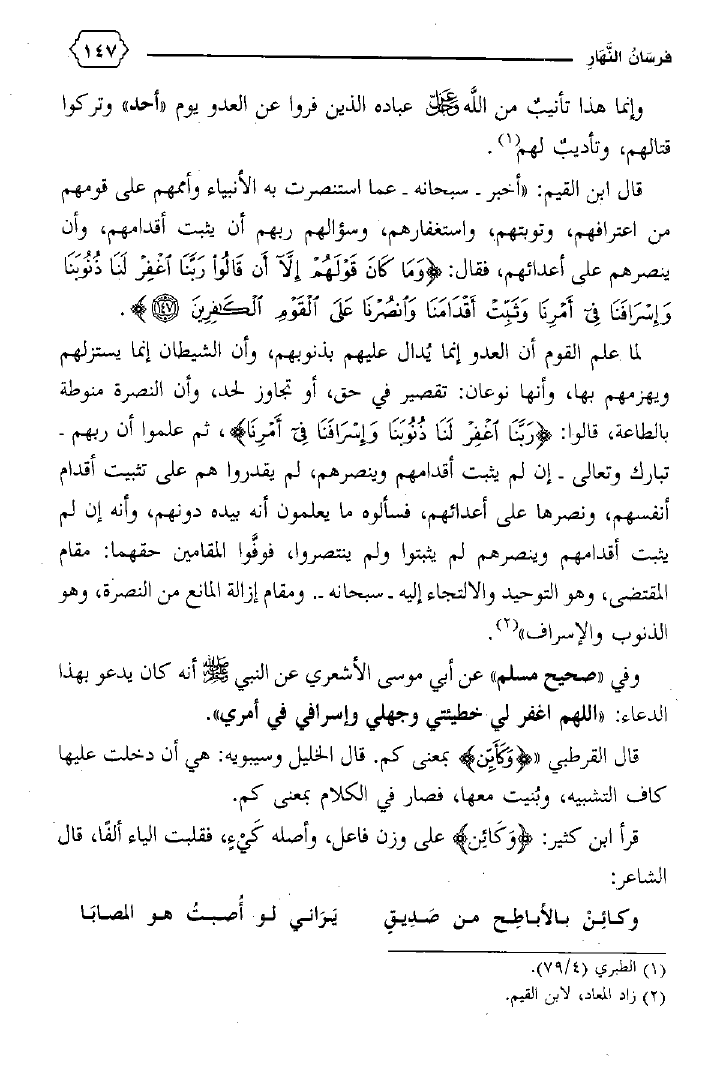 فرسَانُ النَّهَارِ ١٤٧
وإنما هذا تأنيبٌ من اللَّه عَزَّ وَجَلَّ عباده الذين فروا عن العدو يوم «أحد» وتركوا
قتالهم، وتأديبٌ لهم(١).
قال ابن القيم: «أخبر ـ سبحانه ـ عما استنصرت به الأنبياء وأممهم على قومهم
من اعترافهم، وتوبتهم، واستغفارهم، وسؤالهم ربهم أن يثبت أقدامهم، وأن
ينصرهم على أعدائهم، فقال: ﴿وَمَا كَانَ قَوْلَهُمْ إِلَّآ أَن قَالُواْ رَبَّنَا ٱغْفِرْ لَنَا ذُنُوبَنَا
وَإِسْرَافَنَا فِىٓ أَمْرِنَا وَثَبِّتْ أَقْدَامَنَا وَٱنصُرْنَا عَلَى ٱلْقَوْمِ ٱلْكَـٰفِرِينَ ١٤٧﴾.
لما علم القوم أن العدو إنما يُدال عليهم بذنوبهم، وأن الشيطان إنما يستزلهم
ويهزمهم بها، وأنها نوعان: تقصير في حق، أو تجاوز لحد، وأن النصرة منوطة
بالطاعة، قالوا: ﴿رَبَّنَا ٱغْفِرْ لَنَا ذُنُوبَنَا وَإِسْرَافَنَا فِىٓ أَمْرِنَا﴾، ثم علموا أن ربهم ـ
تبارك وتعالى ـ إن لم يثبت أقدامهم وينصرهم، لم يقدروا هم على تثبيت أقدام
أنفسهم، ونصرها على أعدائهم، فسألوه ما يعلمون أنه بيده دونهم، وأنه إن لم
يثبت أقدامهم وينصرهم لم يثبتوا ولم ينتصروا، فوفَّوا المقامين حقهما: مقام
المقتضى، وهو التوحيد والالتجاء إليه ـ سبحانه ـ. ومقام إزالة المانع من النصرة، وهو
الذنوب والإسراف»(٢).
وفي «صحيح مسلم» عن أبي موسى الأشعري عن النبي ﷺ أنه كان يدعو بهذا
الدعاء: «اللهم اغفر لي خطيئتي وجهلي وإسرافي في أمري».
قال القرطبي «﴿وَكَأَيِّن﴾ بمعنى كم. قال الخليل وسيبويه: هي أن دخلت عليها
كاف التشبيه، وبُنيت معها، فصار في الكلام بمعنى كم.
قرأ ابن كثير: ﴿وَكَائِن﴾ على وزن فاعل، وأصله كَيْءٍ، فقلبت الياء ألفًا، قال
الشاعر:
وكائِنْ بالأباطِحِ من صَدِيقِ يَرَاني لو أُصبتُ هو المصابَا
(١) الطبري (٧٩/٤).
(٢) زاد المعاد، لابن القيم.